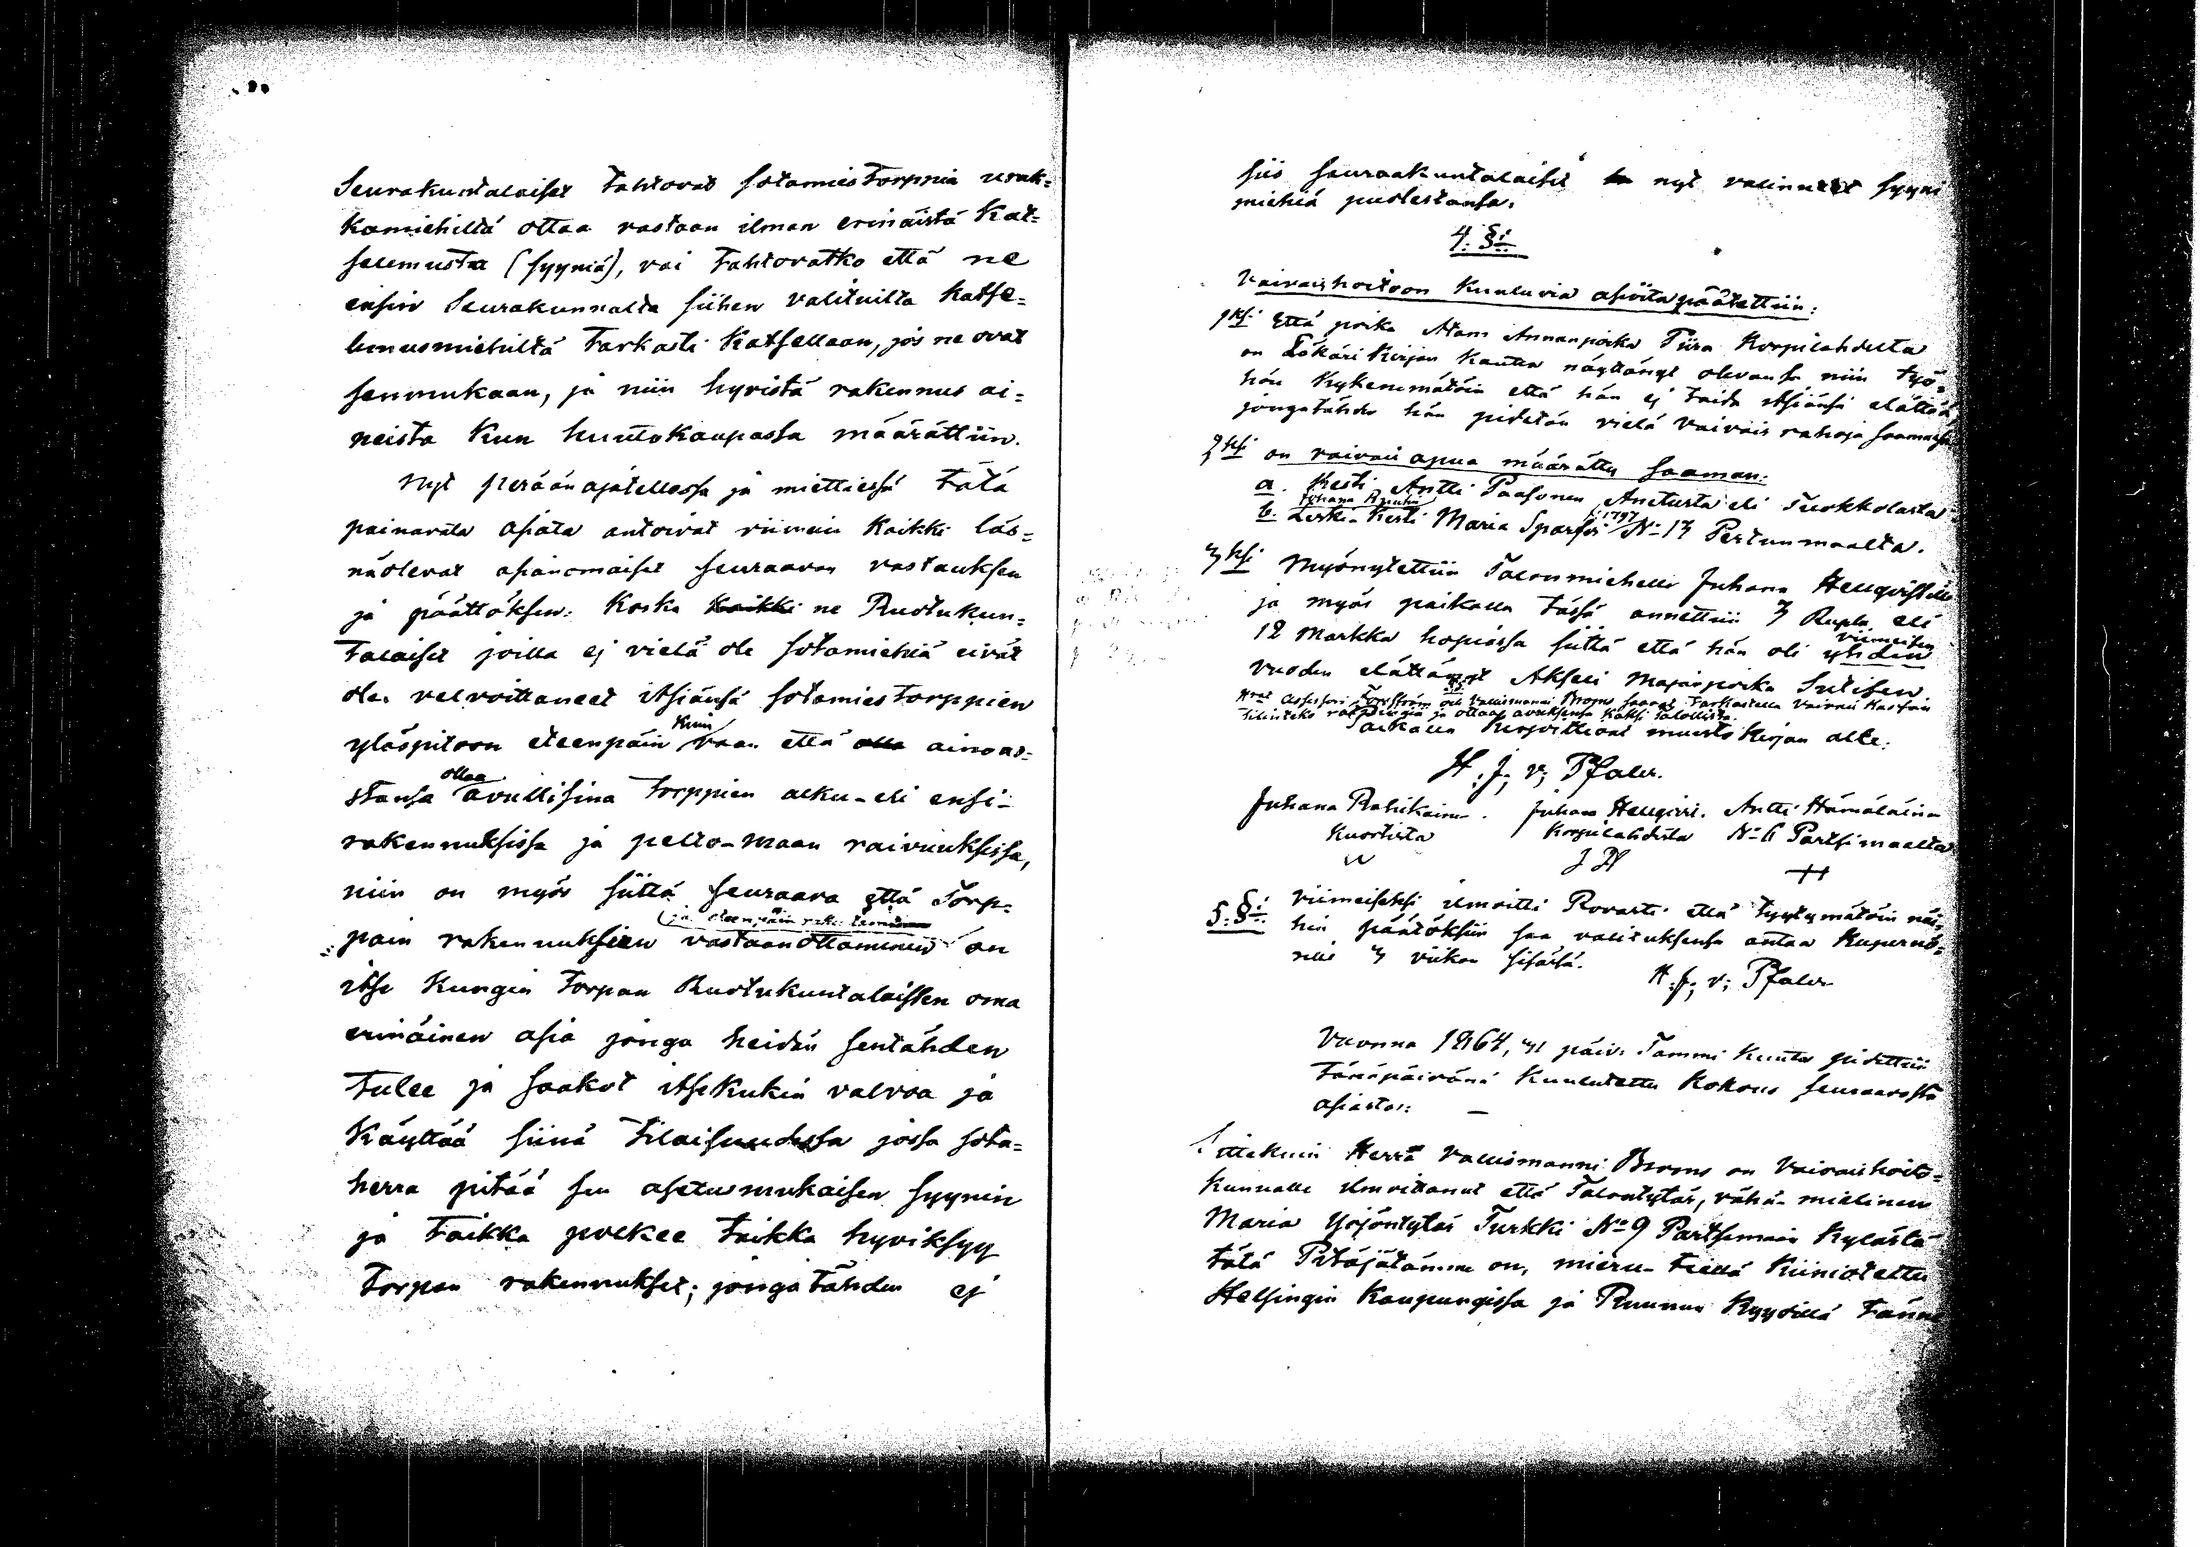 Seurakuntalaiset tahtovat sotamies torppia urak=
kamiehiltä ottaa vastaan ilman erinäistä Kat=
selemusta (syyniä), vai tahtovatko että ne
ensin Seurakunnalta siihen valituilta Katse=
lmusmiehiltä tarkasti Katsellaan, jos ne ovat
senmukaan, ja niin hyvistä rakennus ai=
neista kun huutokaupassa määrättiin.
Nyt perään ajatellessa ja miettiessä tätä
painavata asiata antoivat viimein Kaikki läs=
näolevat asianomaiset seuraavan vastauksen
ja päättöksen: Koska Kaikki ne Ruotukun=
talaiset joilla ej vielä ole sotamiehiä eivät
ole velvoittaneet itsiänsä sotamies torppien
ylöspitoon eteenpäin Kuin vaan että olla ainoas=
tansa ottaa avullisina torppien alku-eli ensi-
rakennuksissa ja pelto-maan raivuuksissa,
niin on myös siittä seuraava että Torp=
pain rakennuksien vastaanottaminen (ja eteenpäin on
itse Kungin torpan Ruotukuntalaisten oma
erinäinen asia jonga heidän sentähden
tulee ja saakot itsekukin valvoa ja
Käyttää siinä tilaisuudessa jossa sota=
herra pitää sen asetusmukaisen syynin
ja taikka polkee taikka hyviksyy
torpan rakennukset; jonga tähden ej
siis seuraakuntalaiset nyt valinneet syyni
miehiä puolestansa.
4. §i
Vaivaishoitoon Kuuluvia asioita päätettiin:
1ksi Että poika Adam Annanpoika Piira Korpilahdelta
on Läkäri Kirjan Kautta näyttänyt olevansa niin työ=
hön Kykenemätöin että hän ej taida itsiänsä elättää
jongatähden hän pidetän vielä vaivais rahoja saamassa
2ksi on vaivais apua määrätty saaman:
a. Kesti Antti Paasonen Aneturta eli Tuokkolasta
b. Leski-Kesti Maria Sparfvi s. 1797 No 13 Pertunmaalta.
3ksi Myönytettiin Talonmiehelle Juhana Hellqvistille
ja myös paikalla tässä annettiin 3 Rupla eli
12 Markka hopiassa siittä että hän oli yhden viimeisen
vuoden elättänyt Akseli Majanpoika Sutisen.
Paikalla Kirjoittivat muisto Kirjan alle:
H. J; v; Pfaler.
Juhana Rahikainen. Juhana Hellqvist. Antti Hämäläinen
Kuortista Korpilahdelta No 6 Partsimaalta
J H
5. §i Viimeiseksi ilmoitti Rovasti että tyytymätöin näi=
hin päätöksiin saa valituksensa antaa Kupernö=
rille 3 viikon sisässä. H. J; v; Pfaler
Vuonna 1864, 31 päiv. Tammi Kuuta pidettiin
tänäpäivänä Kuulutettu Kokous seuraavasta
asiasta: —
Sittekuin Herra Vallesmanni Broms on Vaivaishoito=
kunnalle ilmoittanut että Talontytär, vähä-mielinen
Maria Yrjöntytär Turkki No 9 Partsimaan Kylästä
tätä Pitäjätämme on, mieru-tiellä Kiiniotettu
Helsingin Kaupungissa ja Ruunun Kyydillä tänne